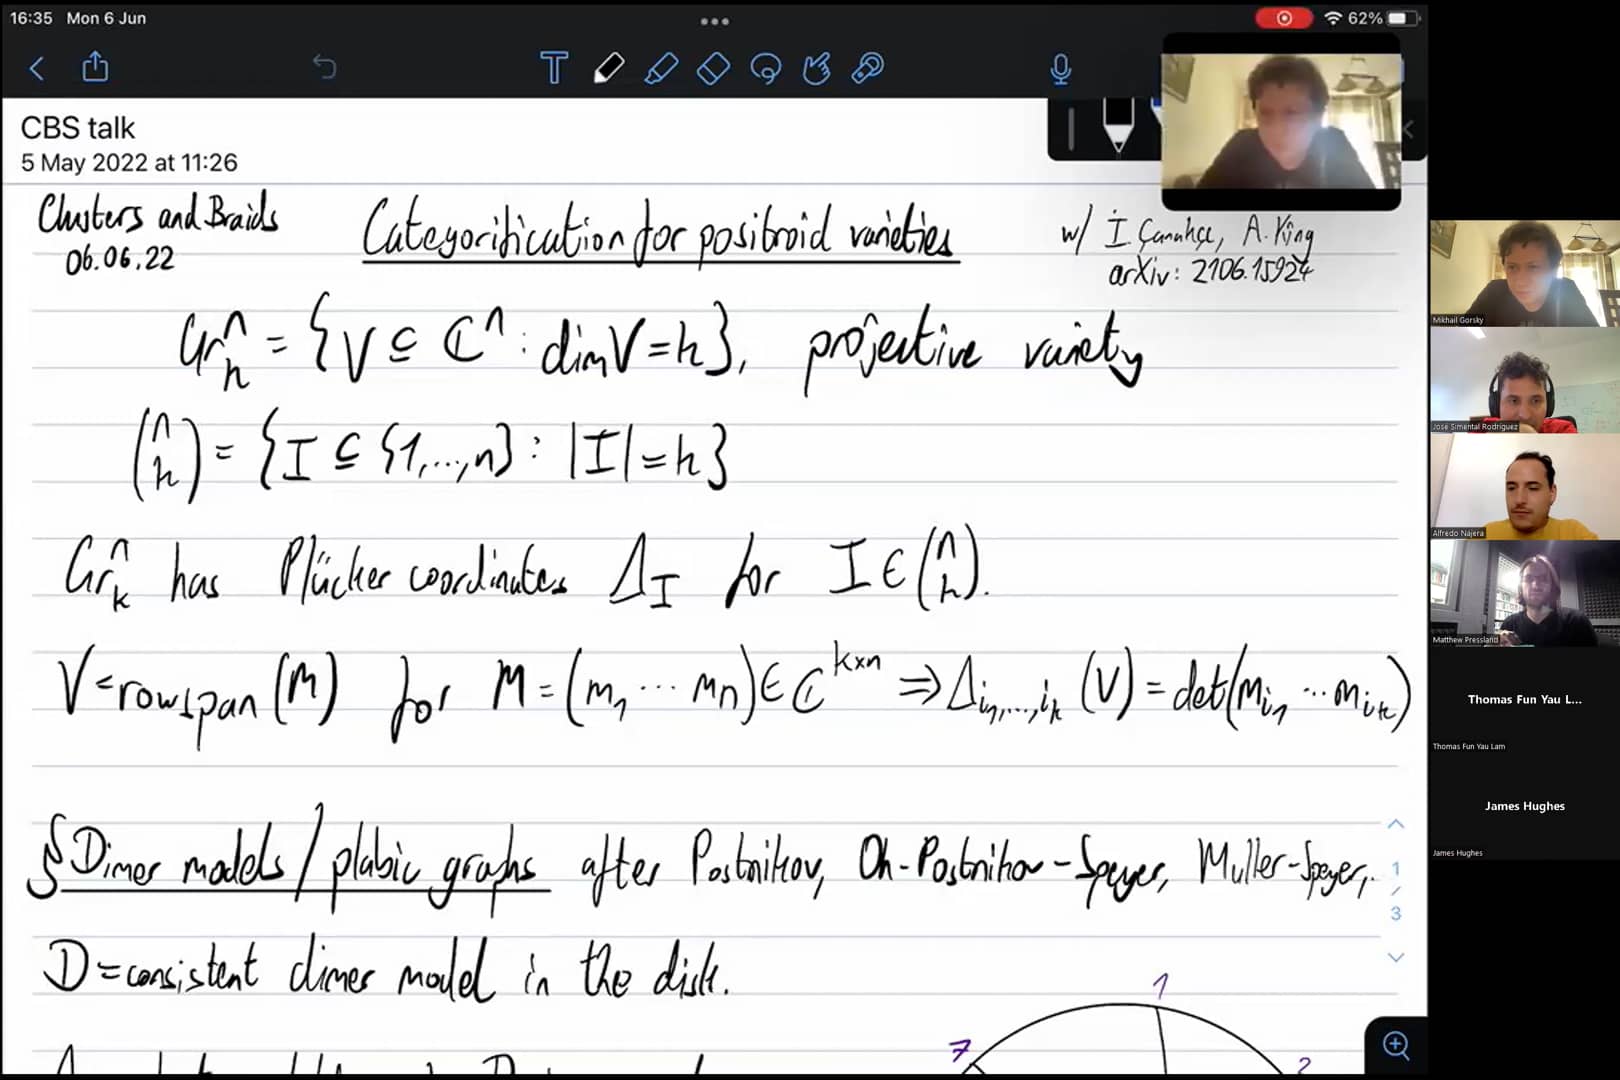 16:35 Mon 6 Jun
62%
CBS talk
5 May 2022 at 11:26
Clusters and Braids
06.06.22
Categorification for positroid varieties
w/ İ. Çanakçı, A. King
arXiv: 2106.15924
Gr_k^n = {V ⊆ ℂ^n : dim V = k}, projective variety
(n k) = {I ⊆ {1,...,n} : |I| = k}
Gr_k^n has Plücker coordinates Δ_I for I ∈ (n k).
V = rowspan(M) for M = (m_1 ... m_n) ∈ ℂ^{k×n} ⇒ Δ_{i_1,...,i_k}(V) = det(m_{i_1} ... m_{i_k})
§ Dimer models / plabic graphs after Postnikov, Oh-Postnikov-Speyer, Muller-Speyer,..
D = consistent dimer model in the disk.
1
7
2
1
/
3
Mikhail Gorsky
Jose Simental Rodriguez
Alfredo Nájera
Matthew Pressland
Thomas Fun Yau L...
Thomas Fun Yau Lam
James Hughes
James Hughes